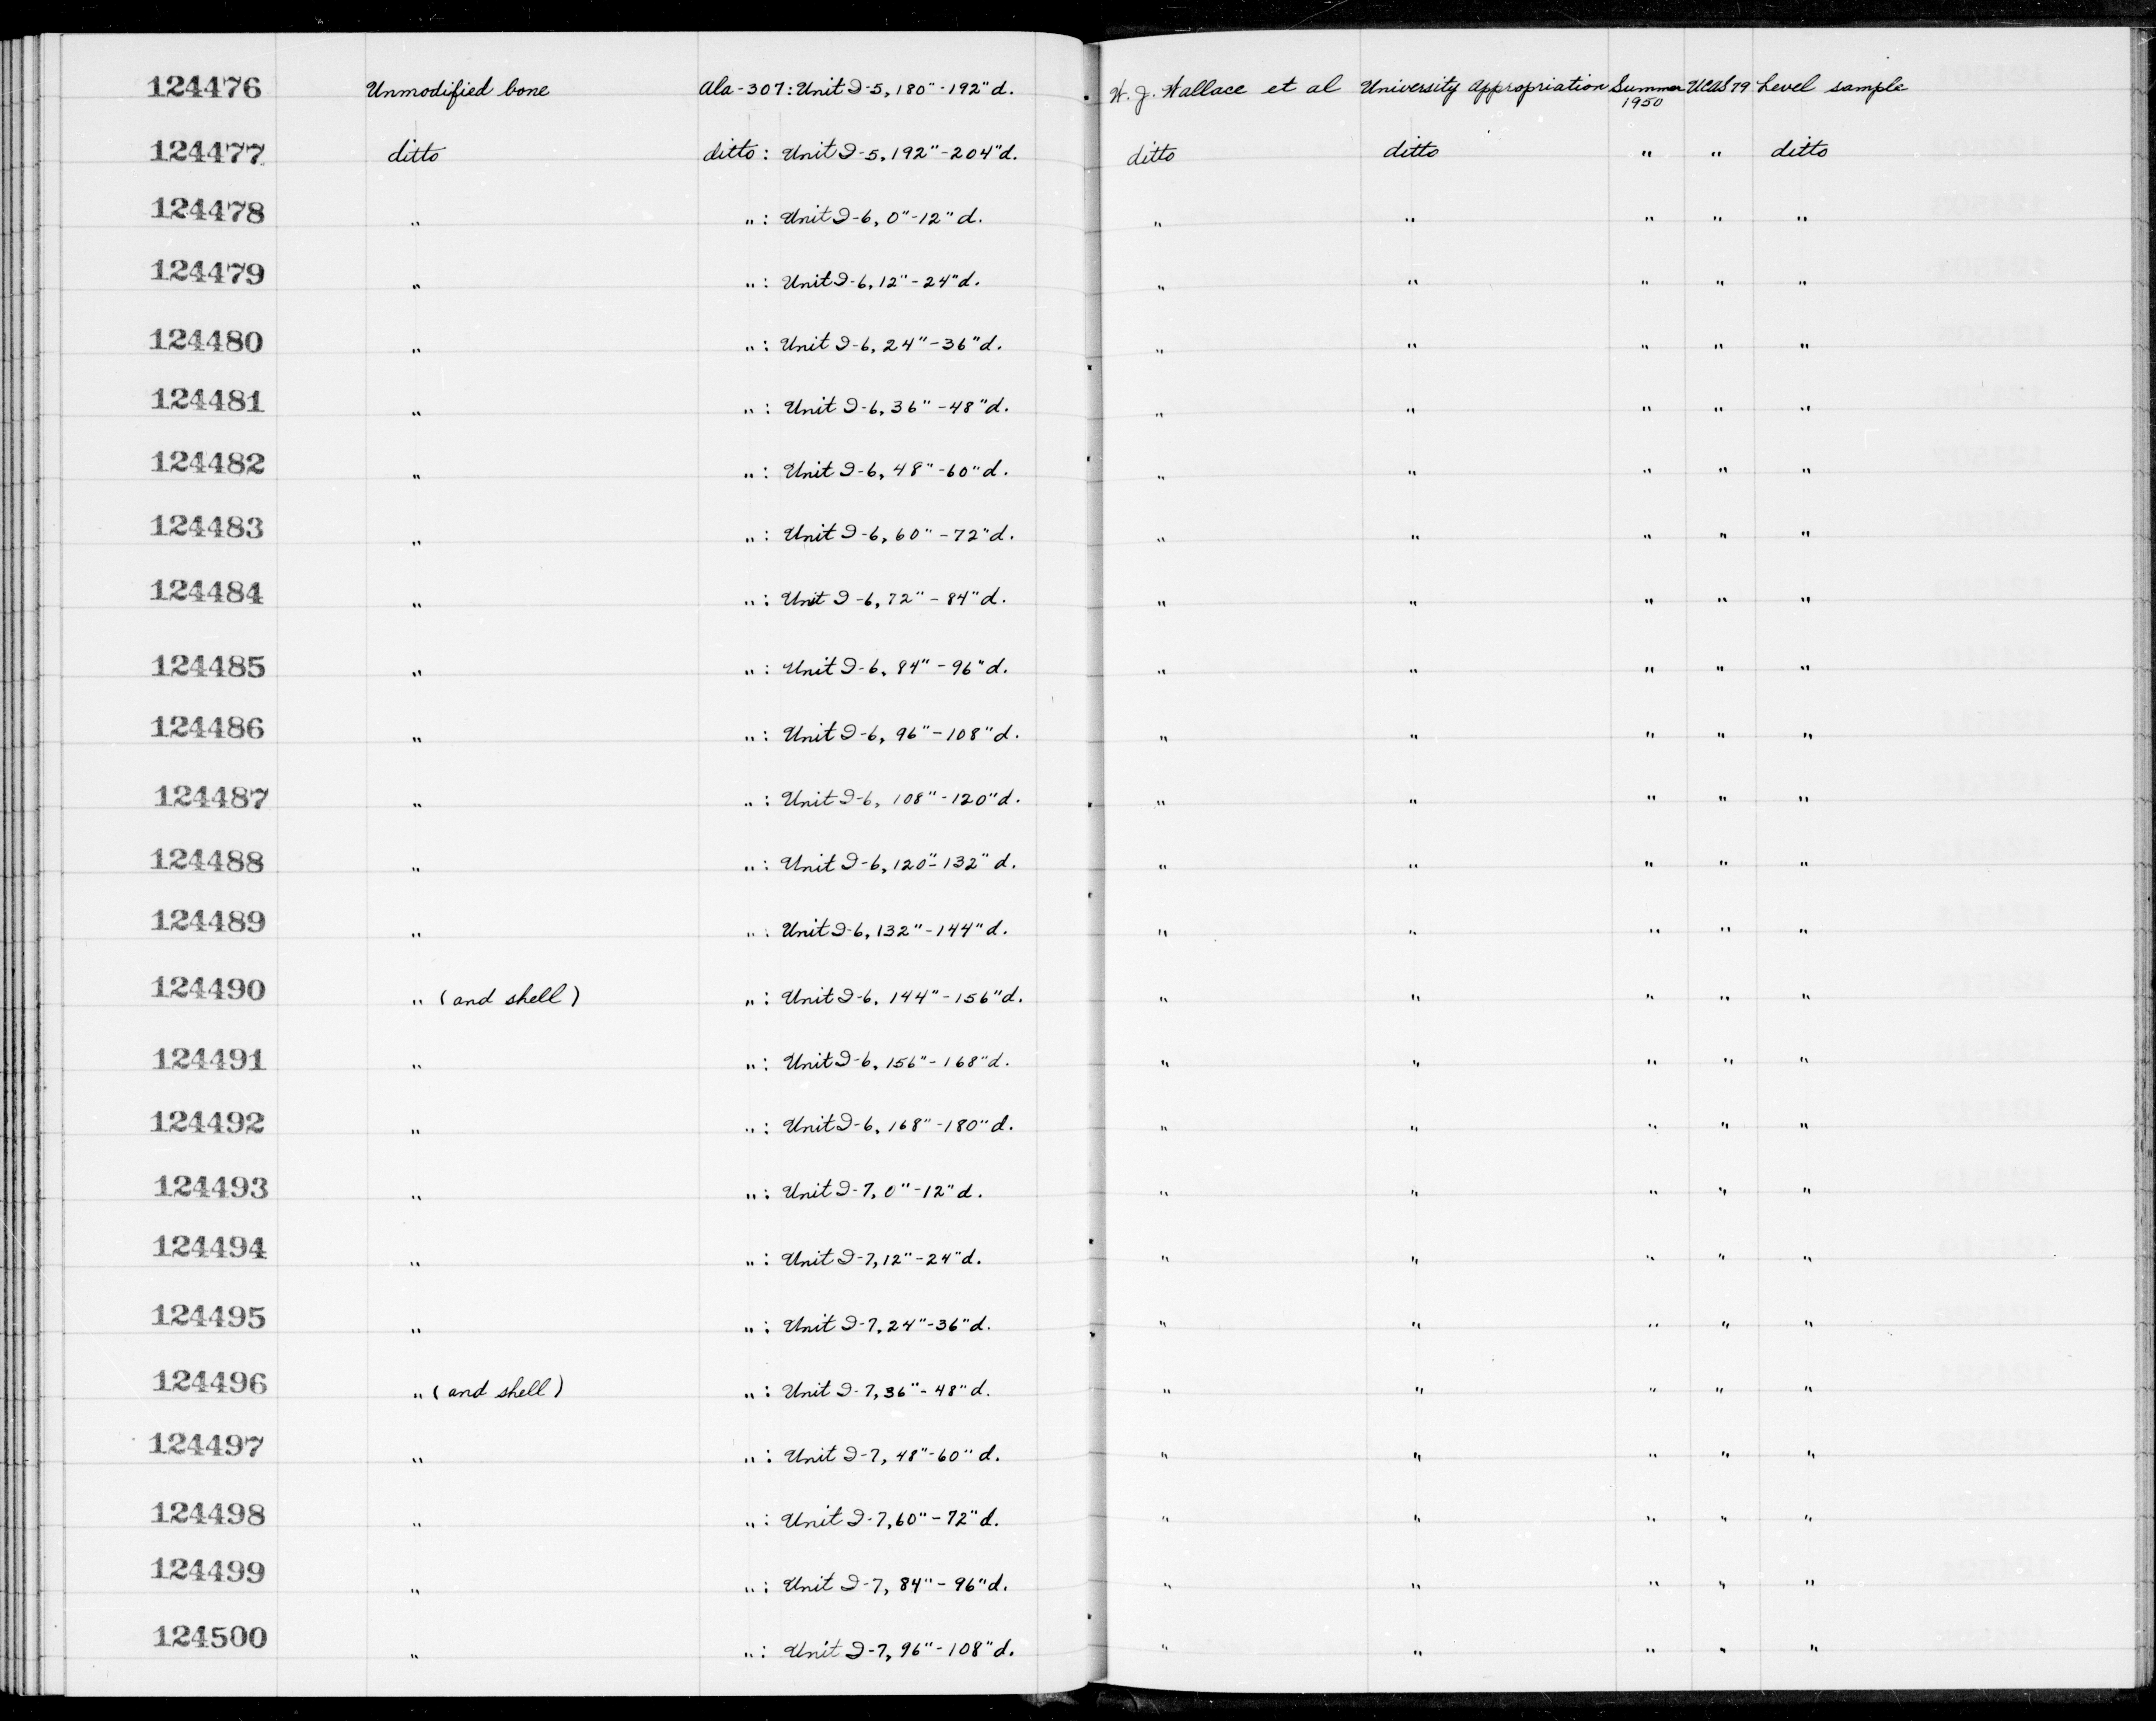 124476 Unmodified bone Ala-307: Unit I-5, 180"-192"d. W. J. Wallace et al University Appropriation Summer 1950 UCAS 79 Level sample
124477 ditto ditto: Unit I-5, 192"-204"d. ditto ditto " " ditto
124478 " ": Unit I-6, 0"-12"d. " " " " "
124479 " ": Unit I-6, 12"-24"d. " " " " "
124480 " ": Unit I-6, 24"-36"d. " " " " "
124481 " ": Unit I-6, 36"-48"d. " " " " "
124482 " ": Unit I-6, 48"-60"d. " " " " "
124483 " ": Unit I-6, 60"-72"d. " " " " "
124484 " ": Unit I-6, 72"-84"d. " " " " "
124485 " ": Unit I-6, 84"-96"d. " " " " "
124486 " ": Unit I-6, 96"-108"d. " " " " "
124487 " ": Unit I-6, 108"-120"d. " " " " "
124488 " ": Unit I-6, 120"-132"d. " " " " "
124489 " ": Unit I-6, 132"-144"d. " " " " "
124490 " (and shell) ": Unit I-6, 144"-156"d. " " " " "
124491 " ": Unit I-6, 156"-168"d. " " " " "
124492 " ": Unit I-6, 168"-180"d. " " " " "
124493 " ": Unit I-7, 0"-12"d. " " " " "
124494 " ": Unit I-7, 12"-24"d. " " " " "
124495 " ": Unit I-7, 24"-36"d. " " " " "
124496 " (and shell) ": Unit I-7, 36"-48"d. " " " " "
124497 " ": Unit I-7, 48"-60"d. " " " " "
124498 " ": Unit I-7, 60"-72"d. " " " " "
124499 " ": Unit I-7, 84"-96"d. " " " " "
124500 " ": Unit I-7, 96"-108"d. " " " " "